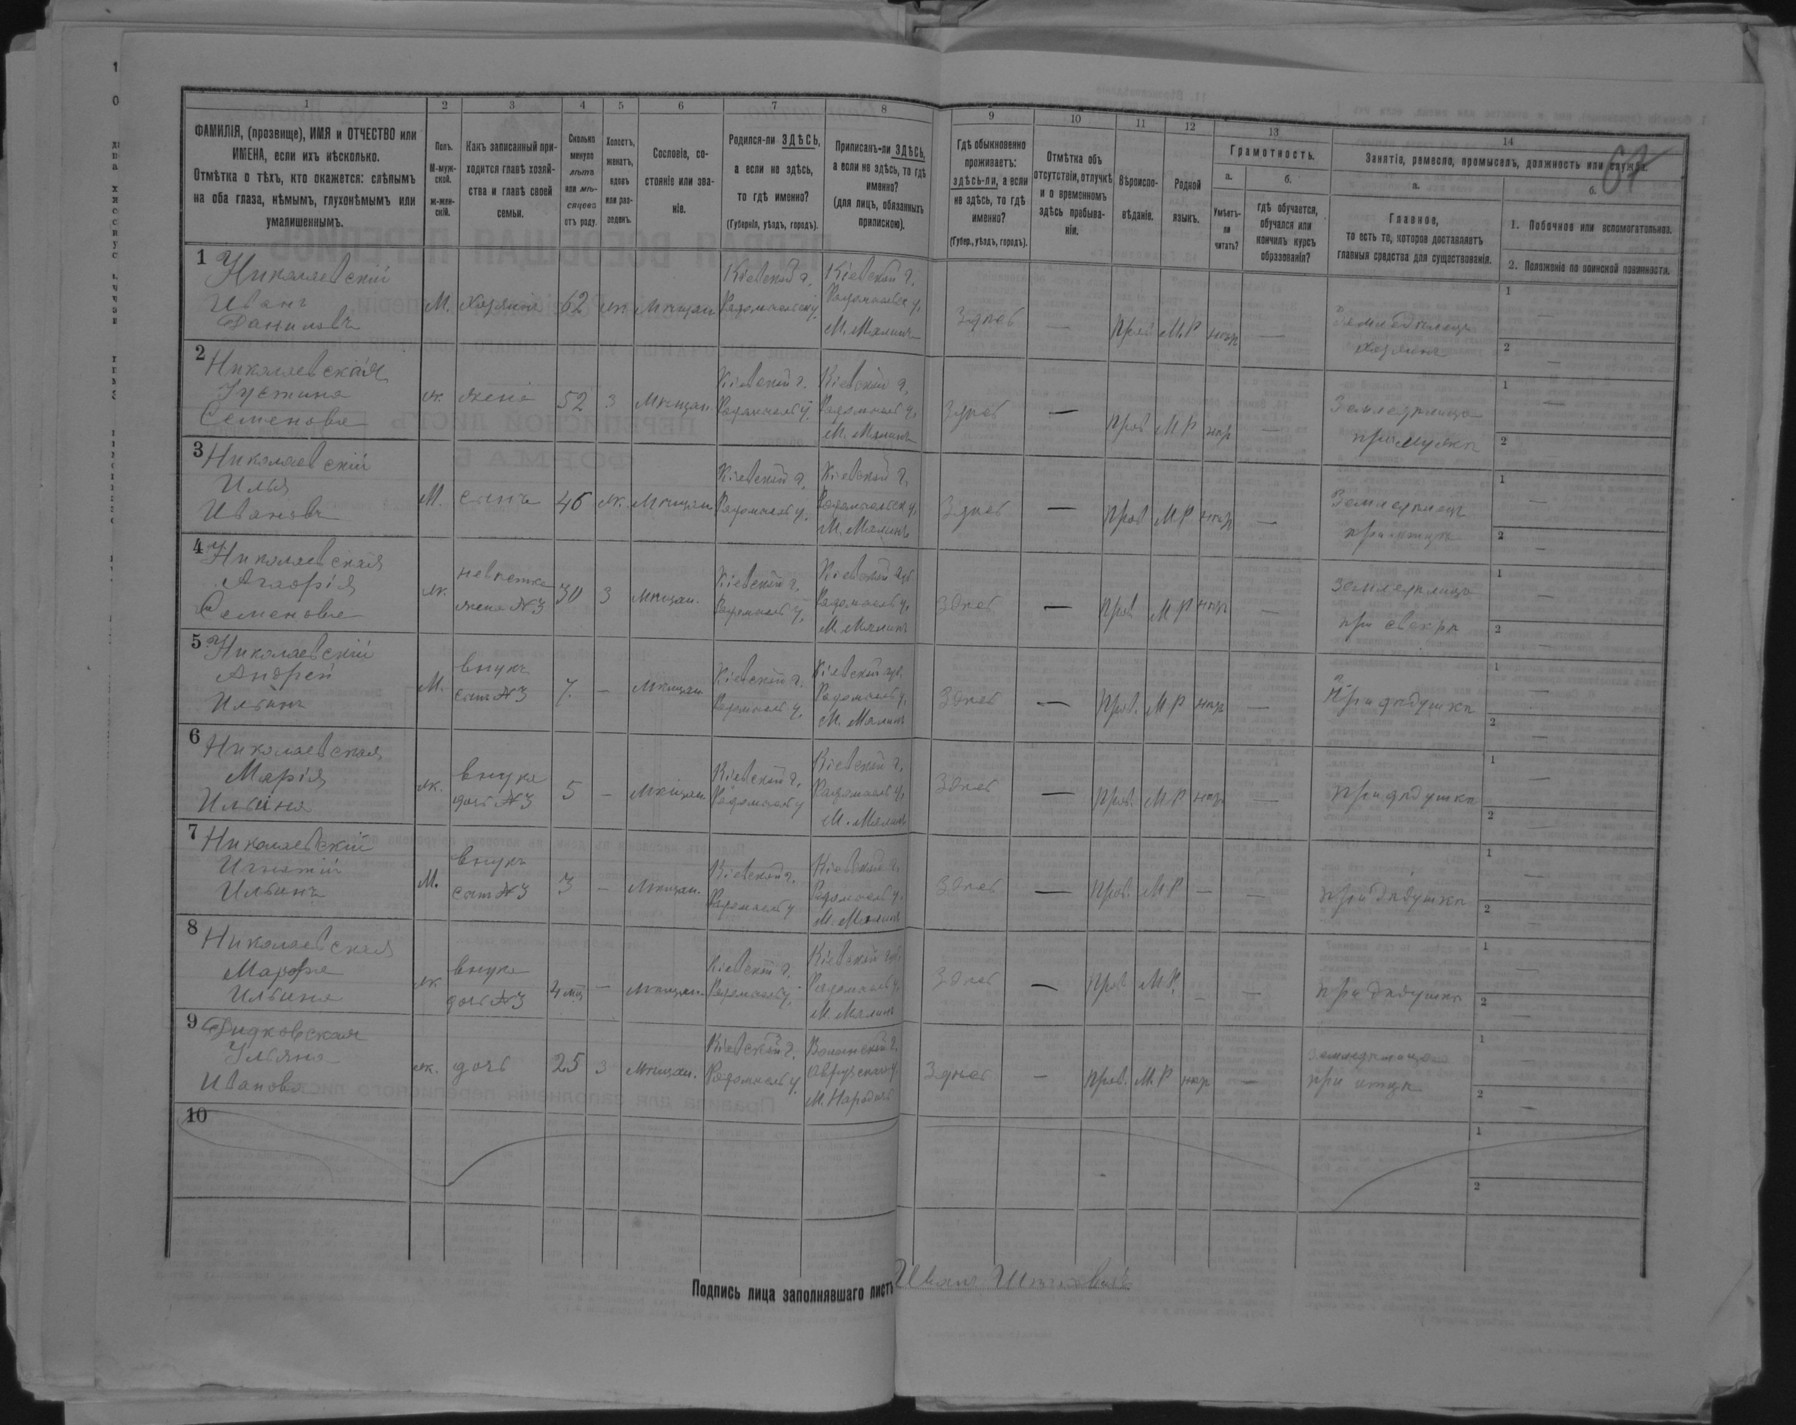 1 2 3 4 5 6 7 8 9 10 11 12 13 14
ФАМИЛІЯ, (прозвище), ИМЯ и ОТЧЕСТВО или
ИМЕНА, если ихъ нѣсколько.
Отмѣтка о тѣхъ, кто окажется: слѣпымъ
на оба глаза, нѣмымъ, глухонѣмымъ или
умалишеннымъ.
Полъ.
М-муж-
ской.
ж-жен-
скій.
Какъ записанный при-
ходится главѣ хозяй-
ства и главѣ своей
семьи.
Сколько
минуло
лѣтъ
или мѣ-
сяцевъ
отъ роду.
Холостъ,
женатъ,
вдовъ
или раз-
веденъ.
Сословіе, со-
стояніе или зва-
ніе.
Родился-ли ЗДѢСЬ,
а если не здѣсь,
то гдѣ именно?
(Губернія, уѣздъ, городъ).
Приписанъ-ли ЗДѢСЬ,
а если не здѣсь, то гдѣ
именно?
(для лицъ, обязанныхъ
припискою).
Гдѣ обыкновенно
проживаетъ:
здѣсь-ли, а если
не здѣсь, то гдѣ
именно?
(Губер., уѣздъ, городъ).
Отмѣтка объ
отсутствіи, отлучкѣ
и о временномъ
здѣсь пребыва-
ніи.
Вѣроиспо-
вѣданіе.
Родной
языкъ.
Грамотность.
а.
Умѣетъ-
ли
читать?
б.
гдѣ обучается,
обучался или
кончилъ курсъ
образованія?
Занятіе, ремесло, промыселъ, должность или служба.
а.
Главное,
то есть то, которое доставляетъ
главныя средства для существованія.
б.
1. Побочное или вспомогательное.
2. Положеніе по воинской повинности.
1 Николаевскій
Иванъ
Даниловъ
М. хозяинъ 62 ж. мѣщан
Кіевской г.
Радомысльск у.
Кіевской г.
Радомысльск у.
М. Малинъ
Здѣсь — прав М.Р. нгр —
Земледѣлецъ
хозяинъ
1 —
2 —
2 Николаевская
Устина
Семенова
ж. жена 52 з мѣщан
Кіевской г.
Радомысль у.
Кіевской г.
Радомысль у.
М. Малинъ
Здѣсь — прав. М Р нгр —
Земледѣлица
при мужѣ
1 —
2 —
3 Николаевскій
Илья
Ивановъ
М. сынъ 46 ж. мѣщан
Кіевской г.
Радомысль у.
Кіевской г.
Радомысльск у.
М. Малинъ
Здѣсь — прав М Р нгр —
Земледѣлецъ
при отцѣ
1 —
2 —
4 Николаевская
Агафія
Семенова
ж. невѣстка
жена №3 30 з мѣщан.
Кіевской г.
Радомысль у.
Кіевской губ
Радомысль у.
М. Малинъ
Здѣсь — прав М Р нгр —
Земледѣлица
при свекрѣ
1 —
2 —
5 Николаевскій
Андрей
Ильинъ
М. внукъ
сын №3 7. — мѣщан.
Кіевской г.
Радомысль у.
Кіевской губ.
Радомысль у.
М. Малинъ
Здѣсь — прав. М Р нгр —
При дѣдушкѣ
1 —
2 —
6 Николаевская
Марія
Ильина
ж. внука
дочь №3 5 — мѣщан.
Кіевской г.
Радомысль у
Кіевской г.
Радомысль у.
М. Малинъ
Здѣсь — прав. М Р нгр —
при дѣдушкѣ
1 —
2 —
7 Николаевскій
Игнатій
Ильинъ
М. внукъ
сын №3 3 — мѣщан.
Кіевской г.
Радомысль у
Кіевской г.
Радомысль у.
М. Малинъ
Здѣсь — прав. М Р — —
при дѣдушкѣ
1 —
2 —
8 Николаевская
Марфа
Ильина
ж внука
дочь №3 4 мц — мѣщан.
Кіевской г.
Радомысль у.
Кіевской губ.
Радомысль у.
М. Малинъ
Здѣсь — прав М Р. — —
при дѣдушкѣ
1 —
2 —
9 Дидковская
Ульяна
Иванова
ж. дочь 25 з мѣщан.
Кіевской г.
Радомысль у.
Волынской г.
Овручскаго у.
М. Народичъ
Здѣсь — прав. М Р нгр —
земледѣлица
при отцѣ
1 —
2 —
10
1
2
Подпись лица заполнявшаго листъ Иванъ